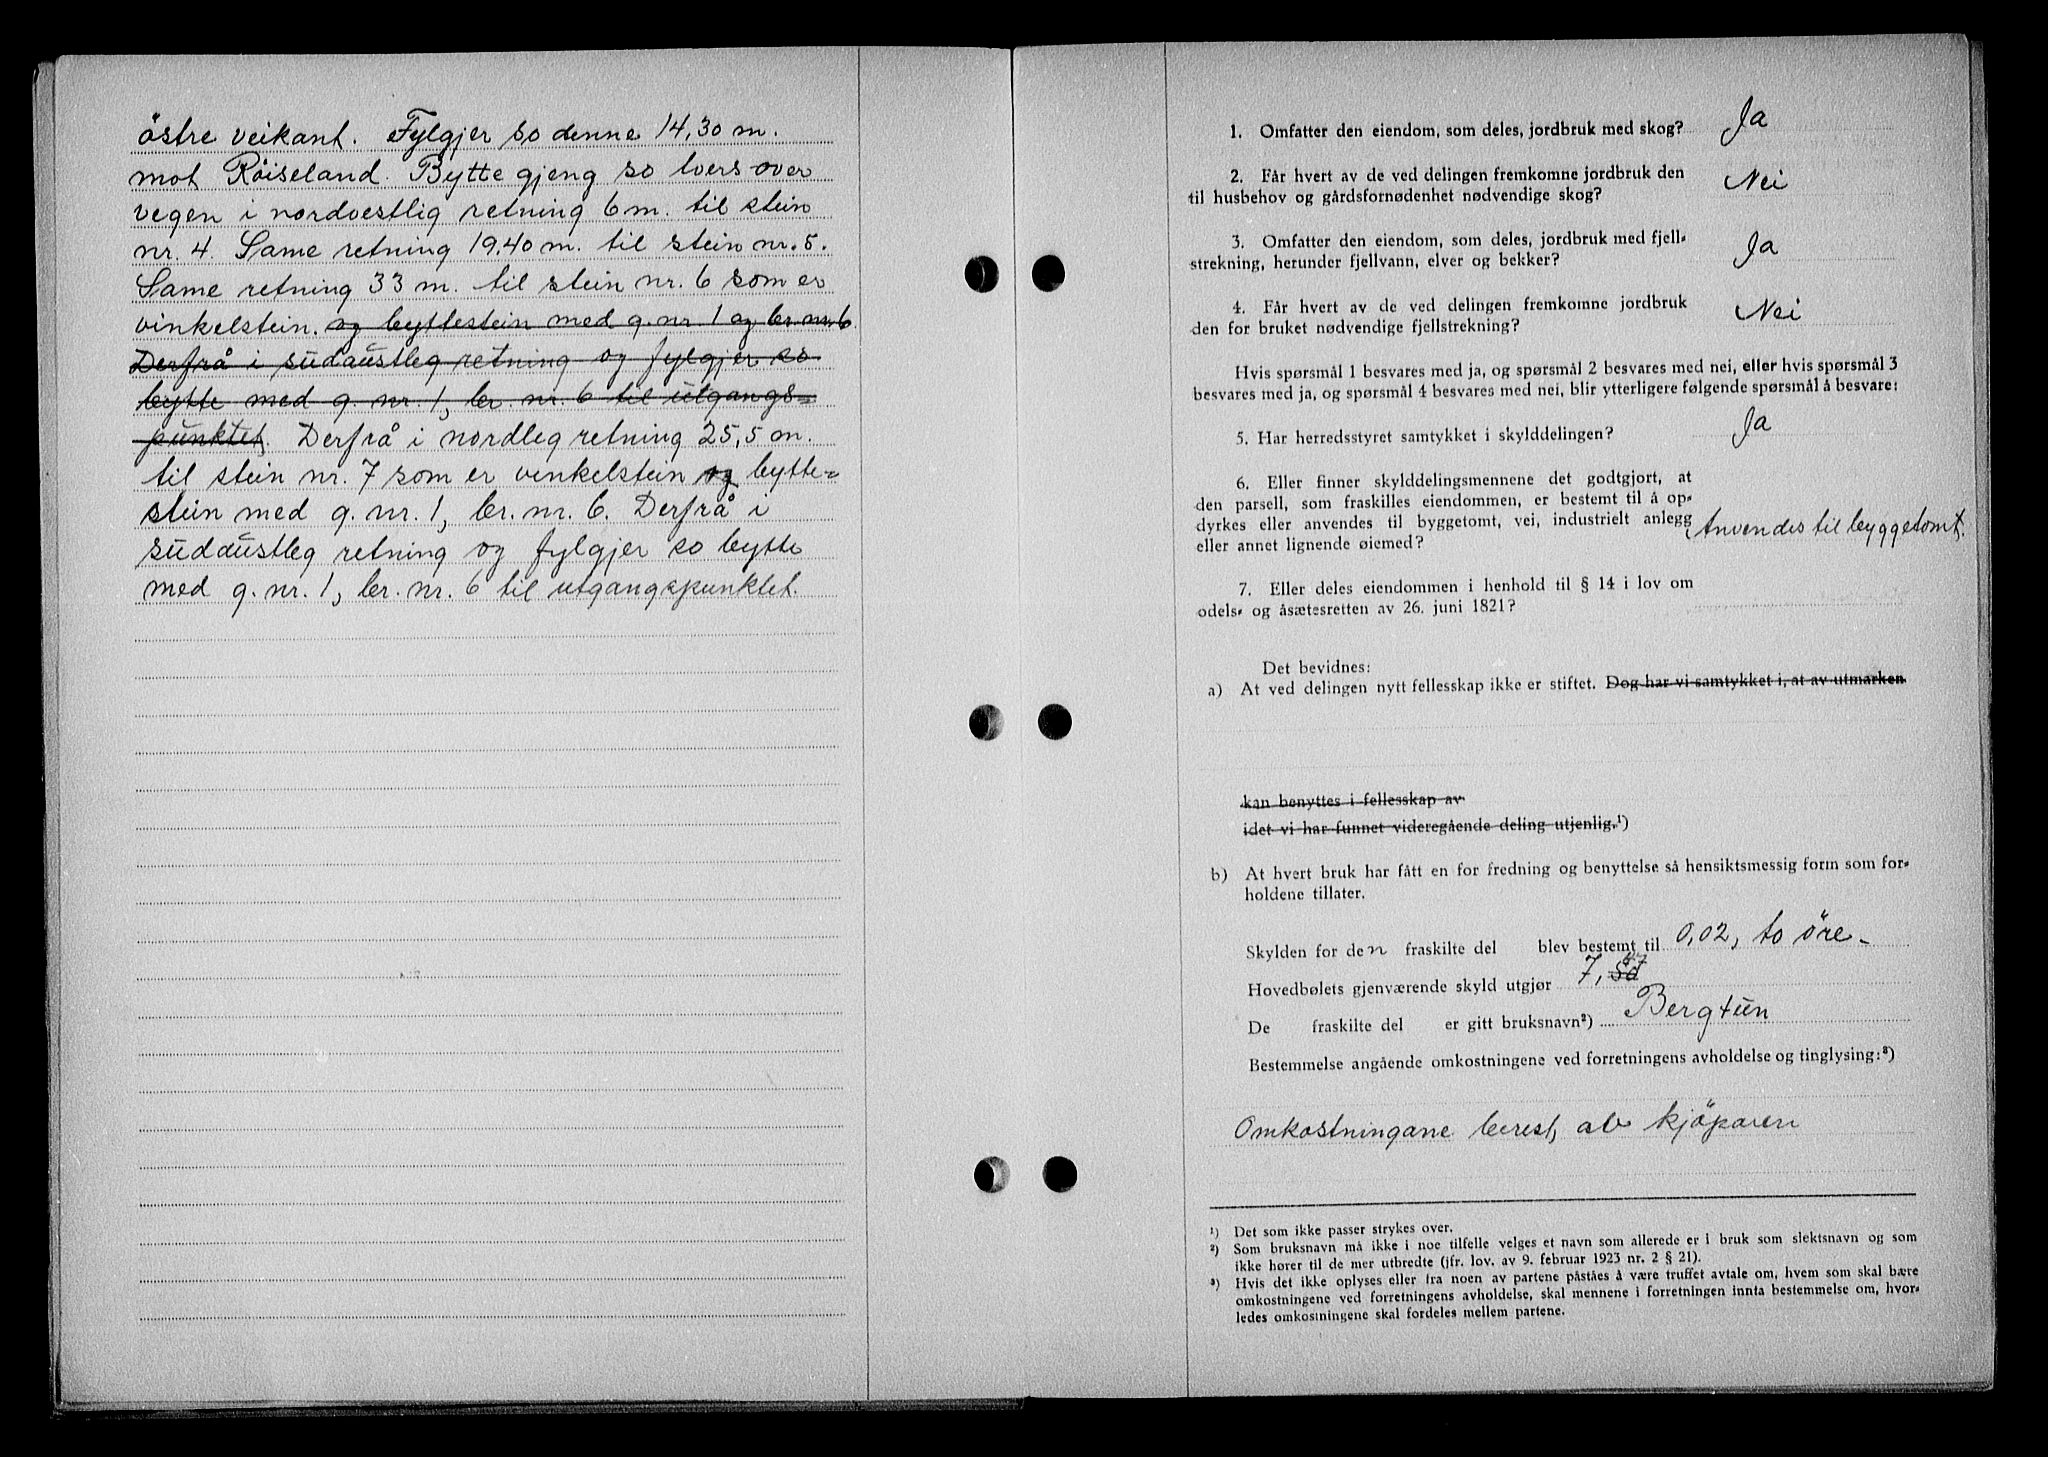 östre veikant. Fylgjer so denne 14,30 m.
mot Röiseland. Bytte gjeng so tvers over
vegen i nordvestlig retning 6 m. til stein
nr. 4. Same retning 19,40 m. til stein nr. 5.
Same retning 33 m. til stein nr. 6 som er
vinkelstein. og byttestein med g. nr. 1 og br. nr. 6.
Derfrå i südaustleg retning og fylgjer so
bytte med g. nr. 1, br. nr. 6 til utgangs=
punktet. Derfrå i nordleg retning 25,5 m.
til stein nr. 7 som er vinkelstein og bytte=
stein med g. nr. 1, br. nr. 6. Derfrå i
südaustleg retning og fylgjer so bytte
med g. nr. 1, br. nr. 6 til utgangspunktet.
1. Omfatter den eiendom, som deles, jordbruk med skog? Ja
2. Får hvert av de ved delingen fremkomne jordbruk den
til husbehov og gårdsfornødenhet nødvendige skog? Nei
3. Omfatter den eiendom, som deles, jordbruk med fjell-
strekning, herunder fjellvann, elver og bekker? Ja
4. Får hvert av de ved delingen fremkomne jordbruk
den for bruket nødvendige fjellstrekning? Nei
Hvis spørsmål 1 besvares med ja, og spørsmål 2 besvares med nei, eller hvis spørsmål 3
besvares med ja, og spørsmål 4 besvares med nei, blir ytterligere følgende spørsmål å besvare:
5. Har herredsstyret samtykket i skylddelingen? Ja
6. Eller finner skylddelingsmennene det godtgjort, at
den parsell, som fraskilles eiendommen, er bestemt til å op-
dyrkes eller anvendes til byggetomt, vei, industrielt anlegg
eller annet lignende øiemed? Anvendes til byggetomt.
7. Eller deles eiendommen i henhold til § 14 i lov om
odels- og åsætesretten av 26. juni 1821?
Det bevidnes:
a) At ved delingen nytt fellesskap ikke er stiftet. Dog har vi samtykket i, at av utmarken
kan benyttes i fellesskap av
idet vi har funnet videregående deling utjenlig.¹)
b) At hvert bruk har fått en for fredning og benyttelse så hensiktsmessig form som for-
holdene tillater.
Skylden for den fraskilte del blev bestemt til 0,02, to öre-
Hovedbølets gjenværende skyld utgjør 7, 47
De fraskilte del er gitt bruksnavn²) Bergtün
Bestemmelse angående omkostningene ved forretningens avholdelse og tinglysing:³)
Omkostningane berest av kjöparen
¹) Det som ikke passer strykes over.
²) Som bruksnavn må ikke i noe tilfelle velges et navn som allerede er i bruk som slektsnavn og som
ikke hører til de mer utbredte (jfr. lov. av 9. februar 1923 nr. 2 § 21).
³) Hvis det ikke oplyses eller fra noen av partene påståes å være truffet avtale om, hvem som skal bære
omkostningene ved forretningens avholdelse, skal mennene i forretningen innta bestemmelse om, hvor-
ledes omkostningene skal fordeles mellem partene.